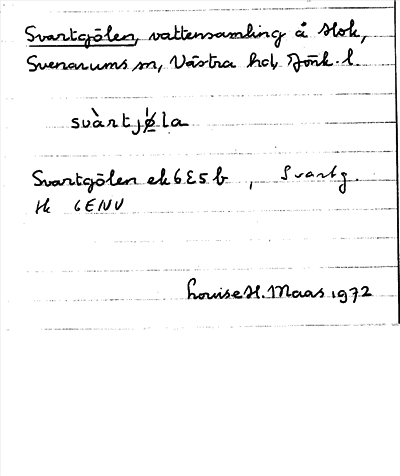 Svartgölen, vattensamling å Slok,
Svenarums sn, Västra hd, Jönk. l.
svàrtjǿla
Svartgölen ek 6E5b, Svartg.
Hk 6ENV
Louise H. Maas 1972